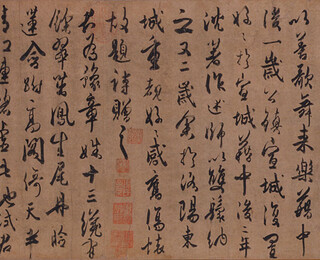 以善歌舞來樂籍中
後一歲公鎮宣城復置
好好於宣城籍中後二年
沈著作述師以雙鬟納
之又二歲余於洛陽東
城重覩好好感舊傷懷
故題詩贈之
君為豫章姝十三纔有
餘翠茁鳳生尾丹臉
蓮含跗高閣倚天半
江連碧虛此地試君